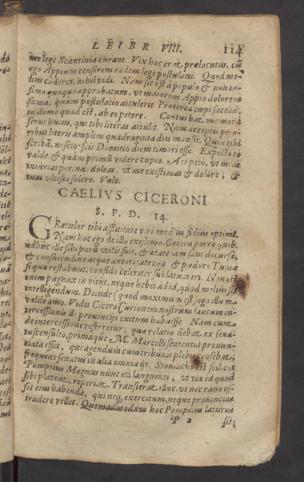 LIBER VIII. 114
me lege Scantinia
Appium censorem eadem lege postulavi. Quod me-
lius caderet, nihil vidi. Nam sic est a populo & non in-
fimo quoque approbatum, ut majorem Appio dolorem
fama, quam postulatio attulerit. Præterea cœpi sacellum,
in domo quod est, ab eo petere.
servi hujus, qui tibi literas attulit. Nam acceptis pri-
oribus literis amplius quadraginta dies mansit. Quid tibi
scribam, nescio. scis Domitio diem timori esse. Expecto te
valde & quam primum videre cupio. A te peto, ut
injurias perinde doleas, ut me existimas & dolere, &
tuas ulcisci solere. Vale.
CAELIVS CICERONI
S. P. D. 14.
GRatulor tibi affinitate viri medius fidius optimi.
Nam hoc ego de illo existimo. Cætera porro, quib.
adhuc ille sibi parum utilis fuit, & ætate jam sunt decussa,
& consuetudine atque autoritate tua & pudore Tulliæ
si qua restabunt, confido celeriter sublatum iri. Non est
enim pugnax in vitiis, neque hebes ad id, quod melius sit
intelligendum. Deinde (quod maximum est) ego illum
valde amo. Vides Cicero Curionem nostrum lautum in-
tercessionis de provinciis exitum habuisse. Nam cum
de intercessione referretur, quæ relatio fiebat ex sena-
tusconsulto, primaque M. Marcelli sententia pronun-
ciata esset, qui agendum cum tribunis plebis censebat,
frequens senatus in alia omnia iit. Stomacho est scilicet
Pompeius Magnus nunc ita languenti, ut vix id quod
sibi placeat, reperiat. Transierant illuc, ut
ejus habenda, qui neq; exercitum, neque provincias
tradere vellet. Quemadmodum hoc Pompeius laturus
P 2 sit,